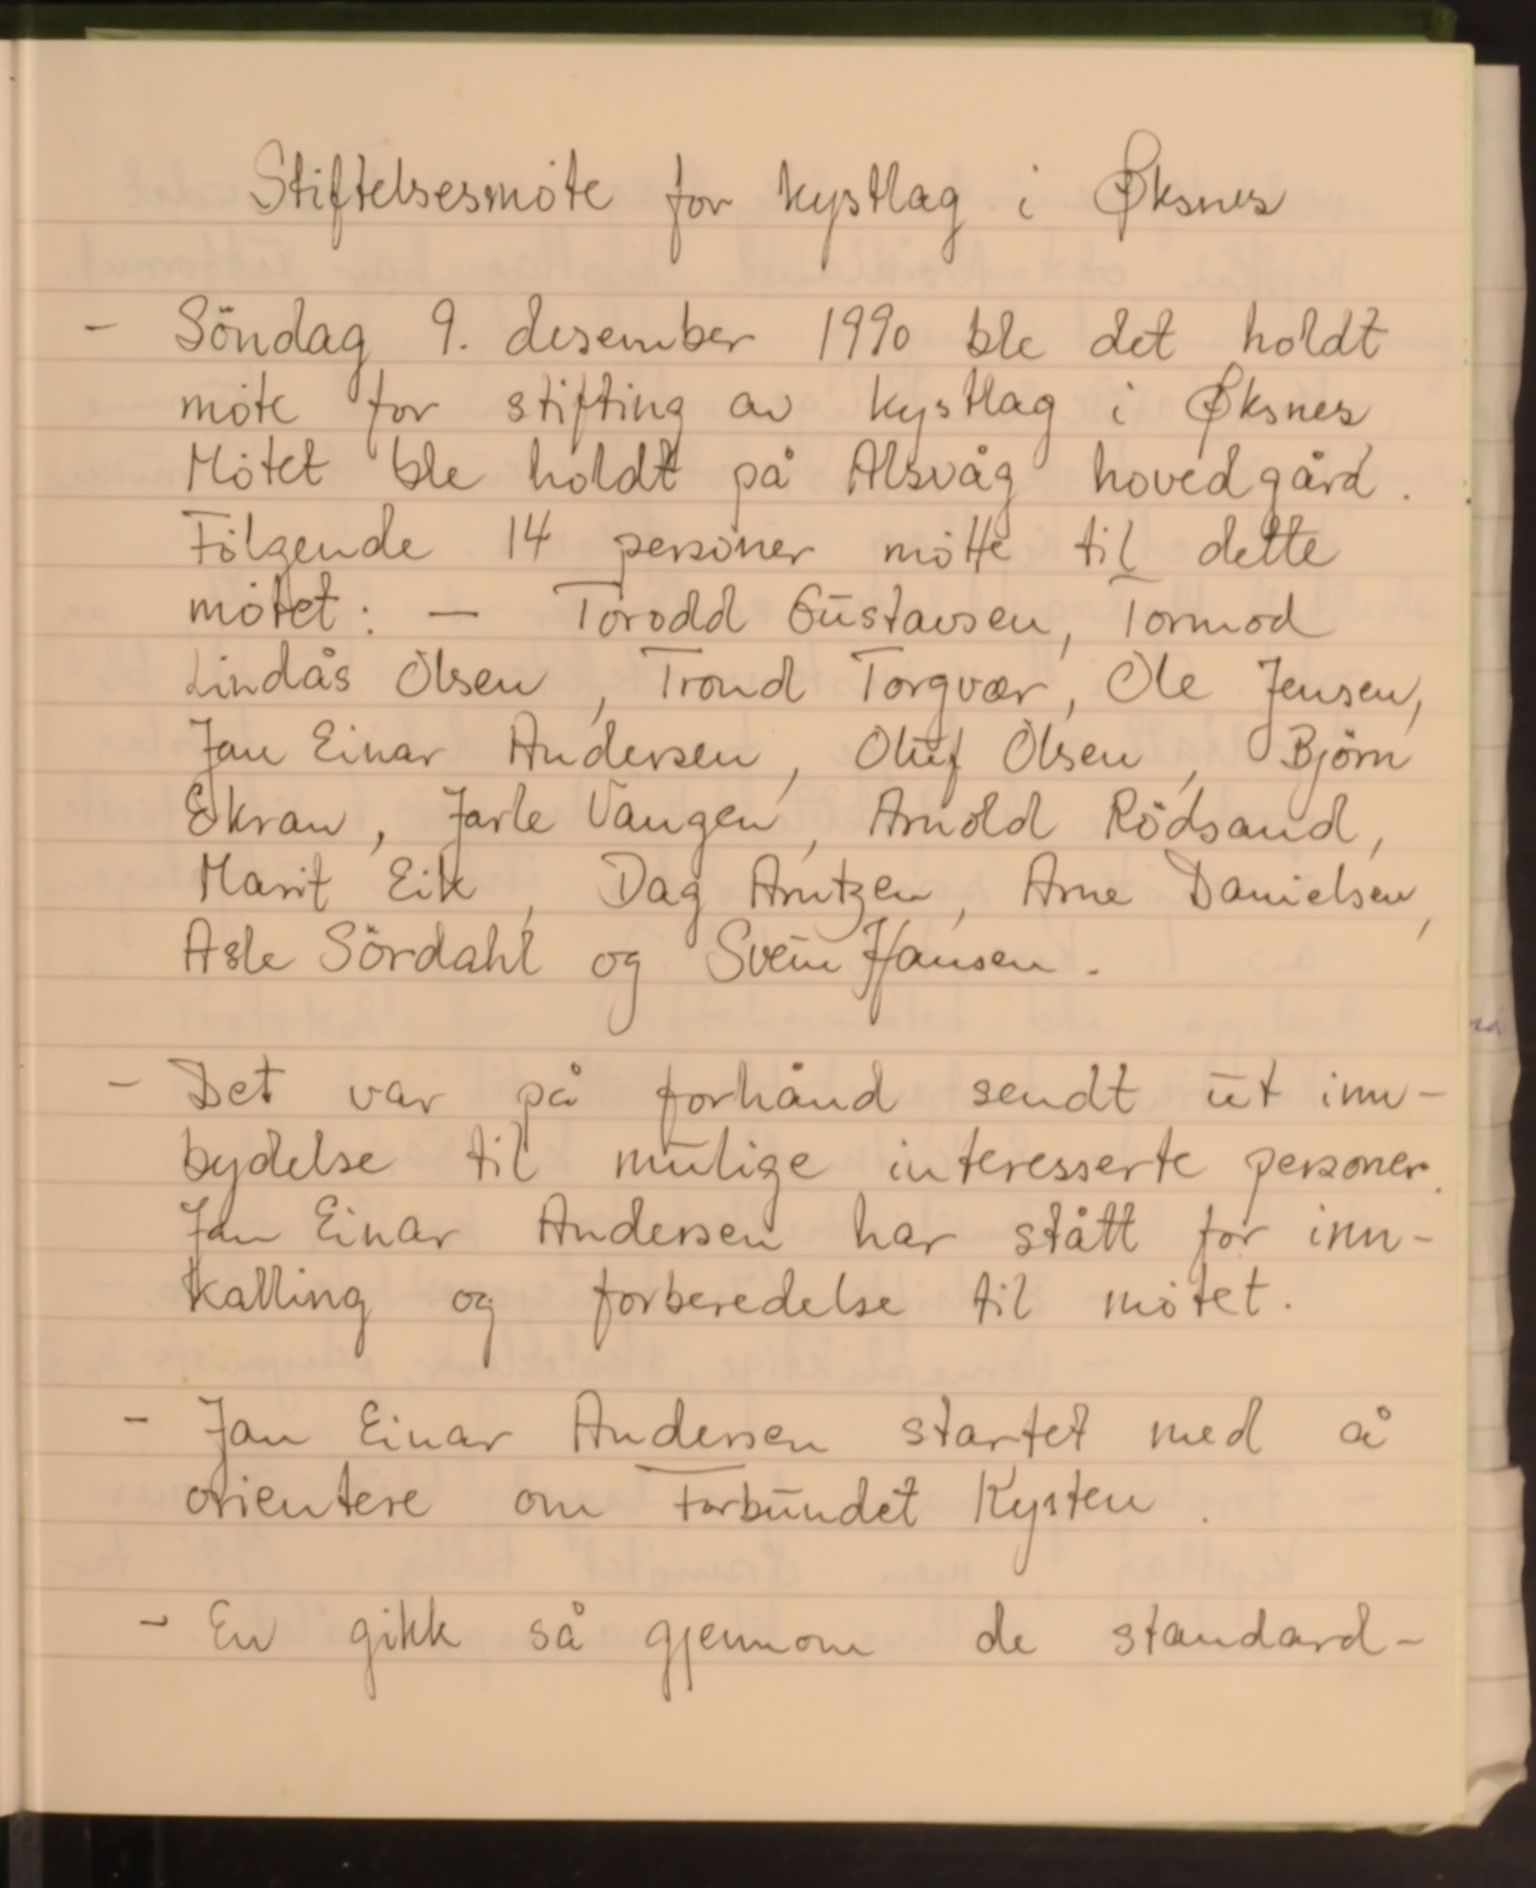 Stiftelsesmöte for kystlag i Øksnes
- Söndag 9. desember 1990 ble det holdt
möte for stifting av kystlag i Øksnes
Mötet ble holdt på Alsvåg hovedgård.
Fölgende 14 personer mötte til dette
mötet: - Torodd Gustavsen, Tormod
Lindås Olsen, Trond Torgvær, Ole Jensen,
Jan Einar Andersen, Oluf Olsen, Björn
Ekran, Jarle Vangen, Arnold Rödsand,
Marit Eik, Dag Arntzen, Arne Danielsen,
Asle Sördahl og Svein Hansen.
- Det var på forhånd sendt ut inn-
bydelse til mulige interesserte personer.
Jan Einar Andersen har stått for inn-
kalling og forberedelse til mötet.
- Jan Einar Andersen startet med å
orientere om Forbundet Kysten.
- En gikk så gjennom de standard-